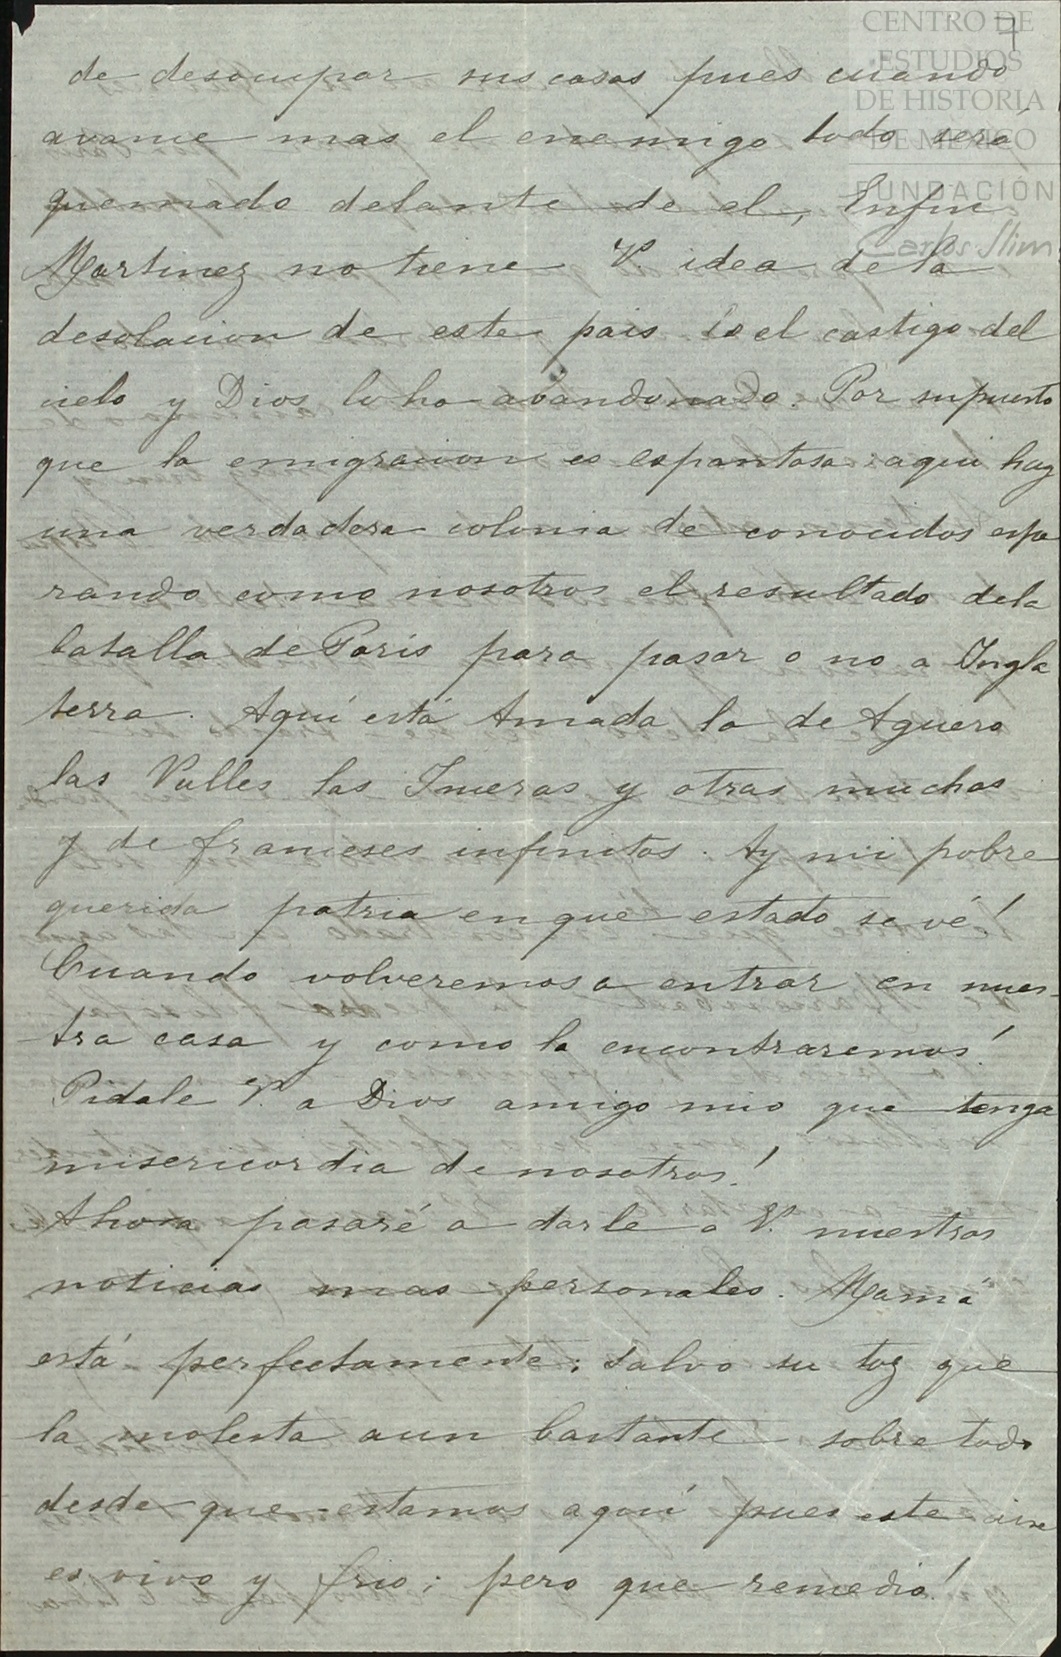 7
CENTRO DE
ESTUDIOS
DE HISTORIA
DE MEXICO
FUNDACIÓN
Carlos Slim
de desocupar sus casas pues cuando
avance mas el enemigo todo será
quemado delante de el, Enfin
Martinez no tiene V. idea de la
desolacion de este pais es el castigo del
cielo y Dios lo ha abandonado. Por supuesto
que la emigracion es espantosa: aqui hay
una verdadera colonia de conocidos espe
rando como nosotros el resultado dela
batalla de Paris para pasar o no a Ingla
terra. Aquí está Amada la de Aguero
las Valles las y otras muchas
y de franceses infinitos. Ay mi pobre
querida patria en que estado se vé!
Cuando volveremos a entrar en nues-
tra casa y como la encontraremos!
Pidale V. a Dios amigo mio que tenga
misericordia de nosotros!
Ahora pasaré a darle a V. nuestras
noticias mas personales. Mamá
está perfectamente; salvo su toz que
la molesta aun bastante sobre todo
desde que estamos aquí pues este aire
es vivo y frio; pero que remedio!